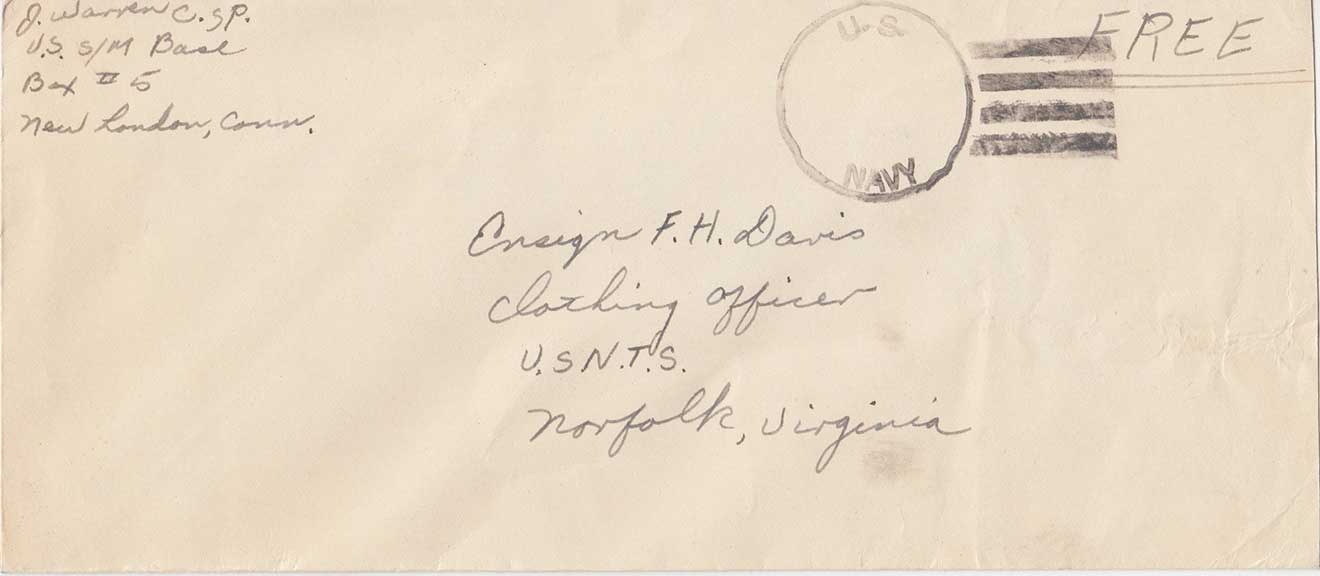 J. Warren C. Sp.
U.S. S/M Base
Box # 5
New London, Conn.
U.S.
NAVY
FREE
Ensign F. H. Davis
Clothing Officer
U.S.N.T.S.
Norfolk, Virginia